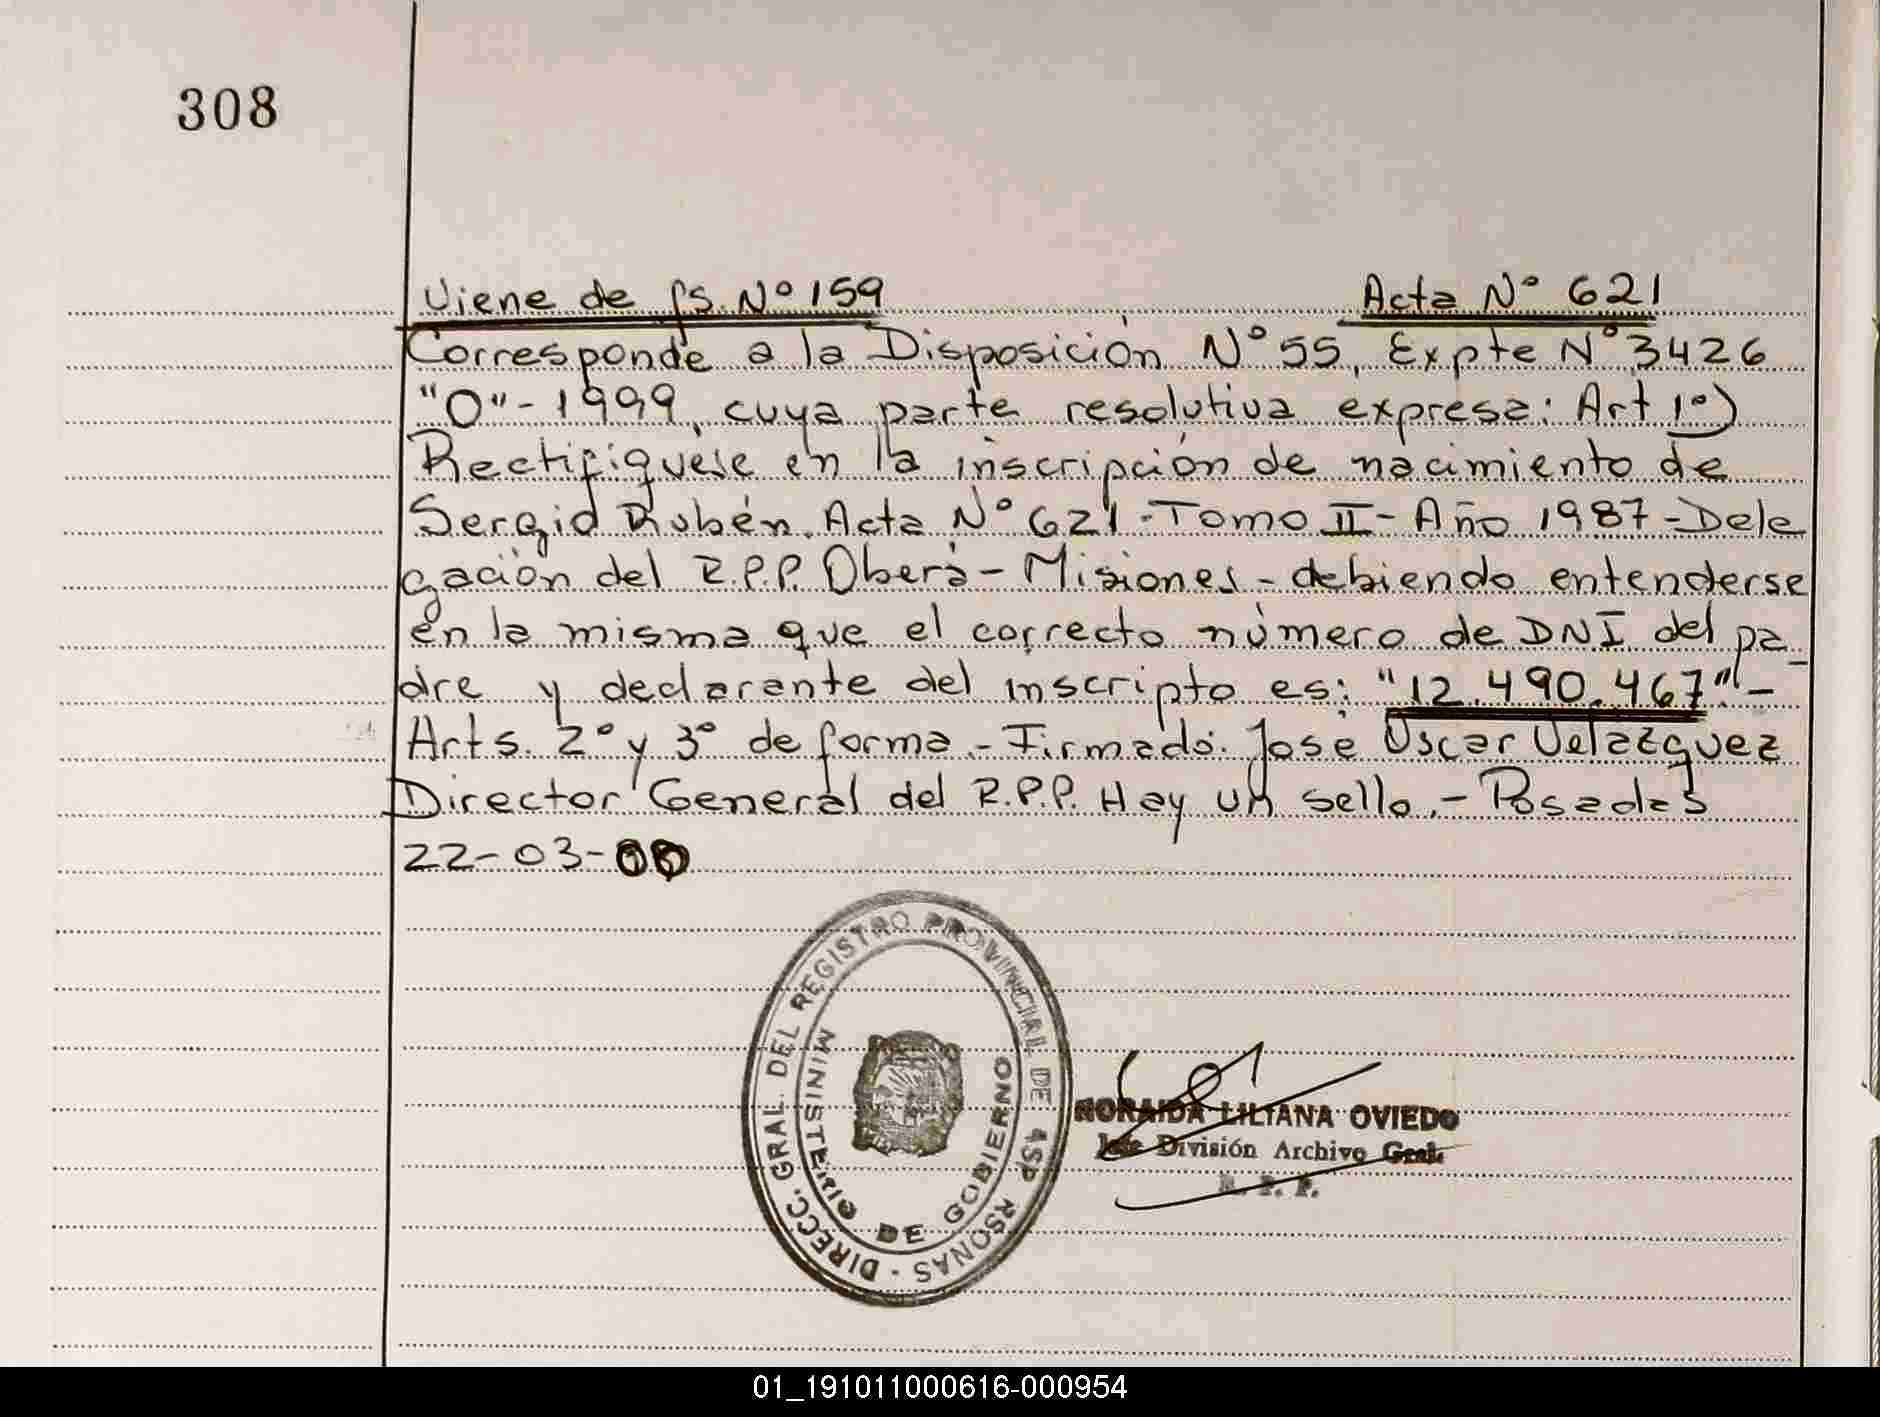 308
Viene de fs. Nº 159 Acta Nº 621
Corresponde a la Disposición Nº 55, Expte Nº 3426
"O"-1999, cuya parte resolutiva expresa: Art 1º)
Rectifiquése en la inscripción de nacimiento de
Sergio Rubén. Acta Nº 621-Tomo II-Año 1987-Dele
gación del R.P.P. Oberá-Misiones-debiendo entenderse
en la misma que el correcto número de DNI del pa_
dre y declarante del inscripto es: "12.490.467".-
Arts. 2º y 3º de forma.-Firmado. José Oscar Velazquez
Director General del R.P.P. Hay un sello.-Posadas
22-03-00
DIRECC. GRAL. DEL REGISTRO PROVINCIAL DE RSONAS -
MINISTERIO DE GOBIERNO
NORAIDA LILIANA OVIEDO
Jefe División Archivo Gral.
R. P. P.
01_191011000616-000954